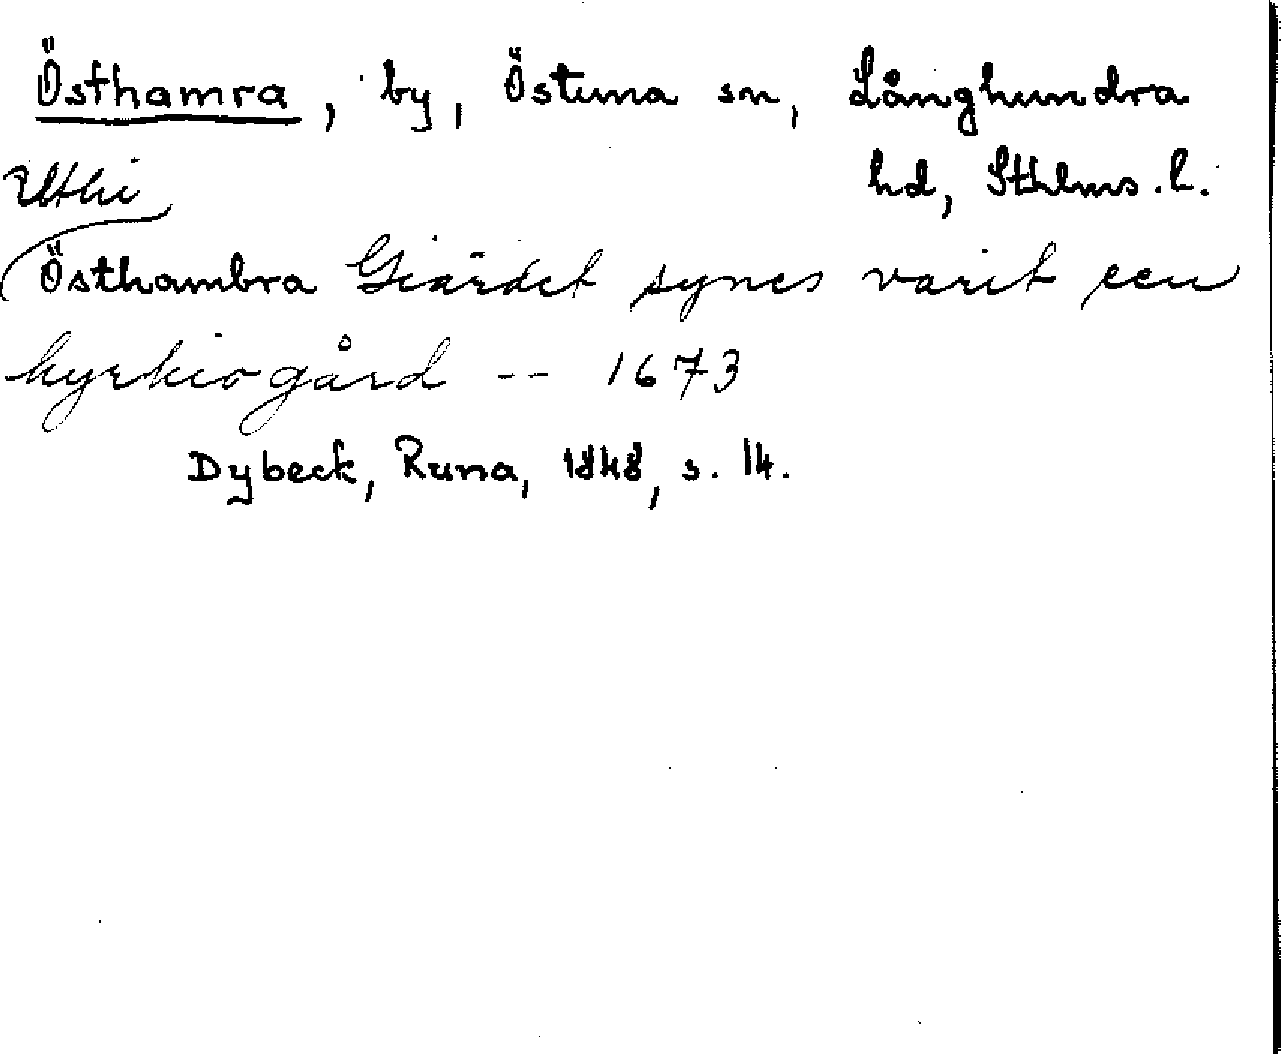 Östhamra, by, Östuna sn, Långhundra
hd, Sthlms. l.
Uthi
Östhambra Giärdet synes varit een
kyrkiogård -- 1673
Dybeck, Runa, 1848, s. 14.